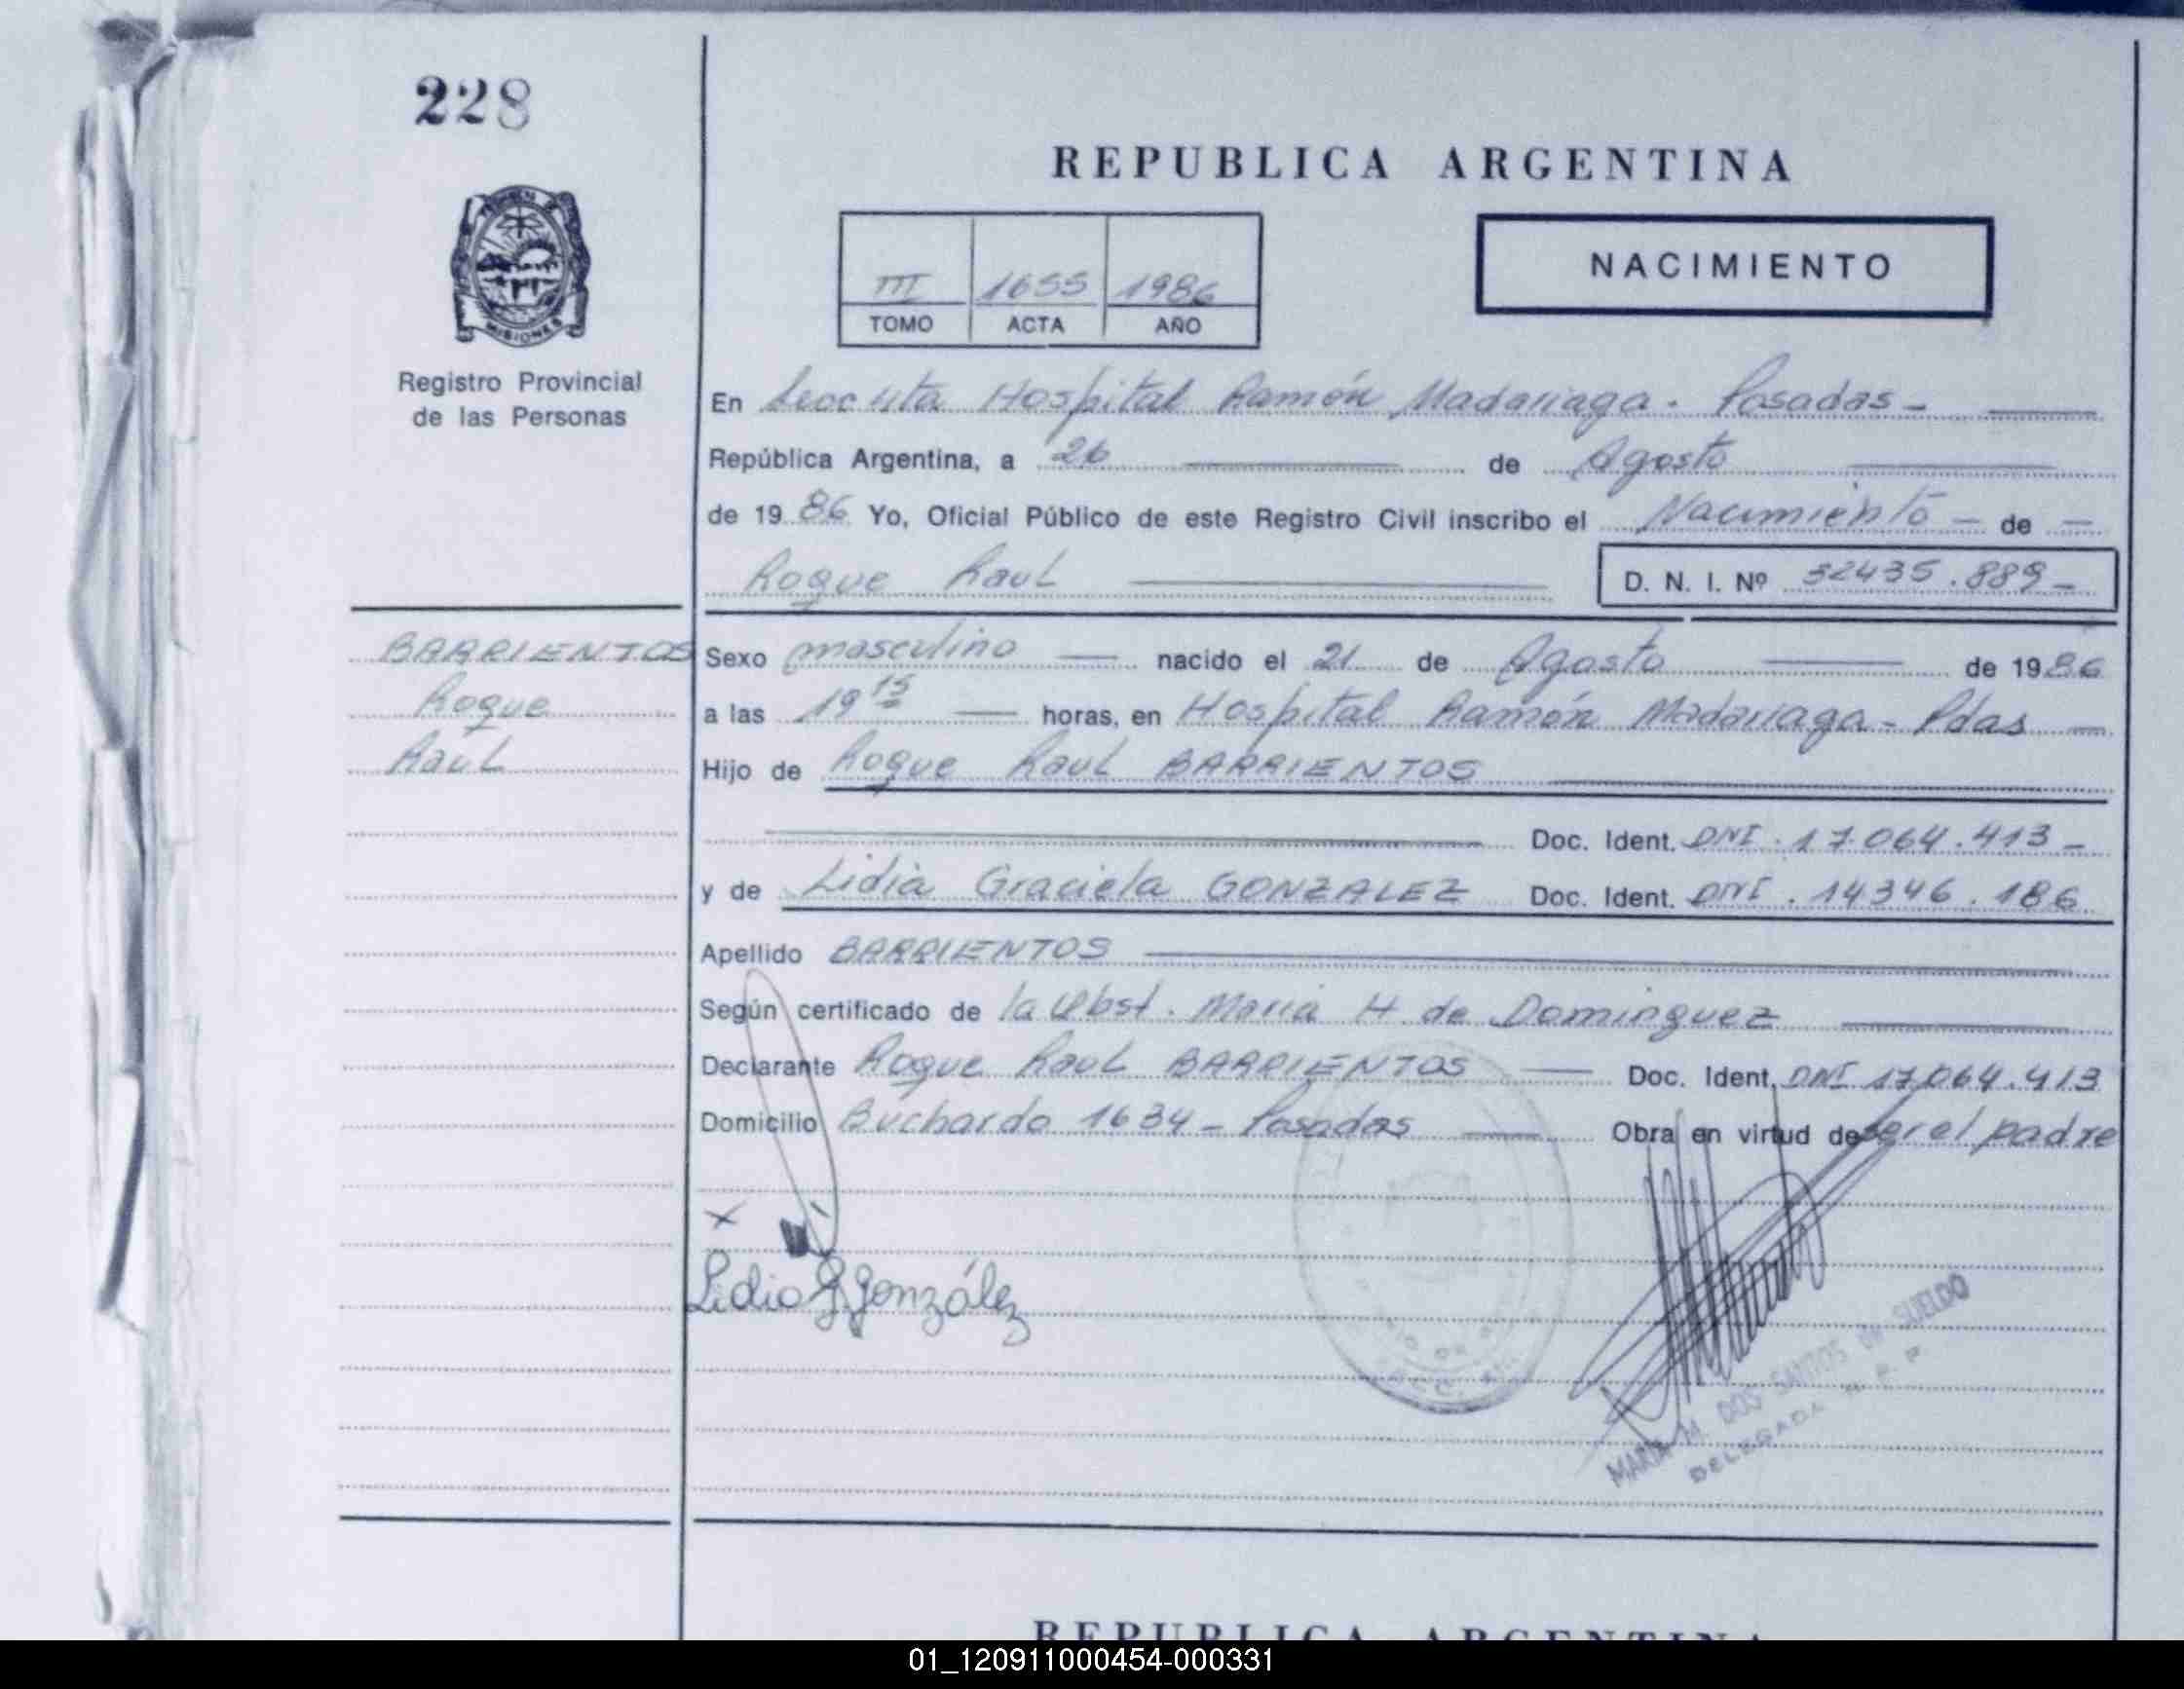 228
REPUBLICA ARGENTINA
NACIMIENTO
III 1655 1986
TOMO ACTA AÑO
PROVINCIA DE
MISIONES
Registro Provincial
de las Personas
En Secc 4ta Hospital Ramón Madariaga - Posadas -
República Argentina, a 26 de Agosto
de 1986 Yo, Oficial Público de este Registro Civil inscribo el Nacimiento - de -
Roque Raul D. N. I. Nº 32435.889 -
BARRIENTOS
Roque
Raul
Sexo masculino nacido el 21 de Agosto de 1986
a las 19 15 horas, en Hospital Ramón Madariaga - Pdas
Hijo de Roque Raul BARRIENTOS
Doc. Ident. DNI . 17.064.413 -
y de Lidia Graciela GONZALEZ Doc. Ident. DNI . 14346.186
Apellido BARRIENTOS
Según certificado de la Obst. Maria H de Dominguez
Declarante Roque Raul BARRIENTOS Doc. Ident. DNI 17.064.413
Domicilio Buchardo 1634 - Posadas Obra en virtud de ser el padre
x
Lidia G González
MARIA M. DOS SANTOS DE SUELDO
DELEGADA R. P. P.
REPUBLICA ARGENTINA
01_120911000454-000331